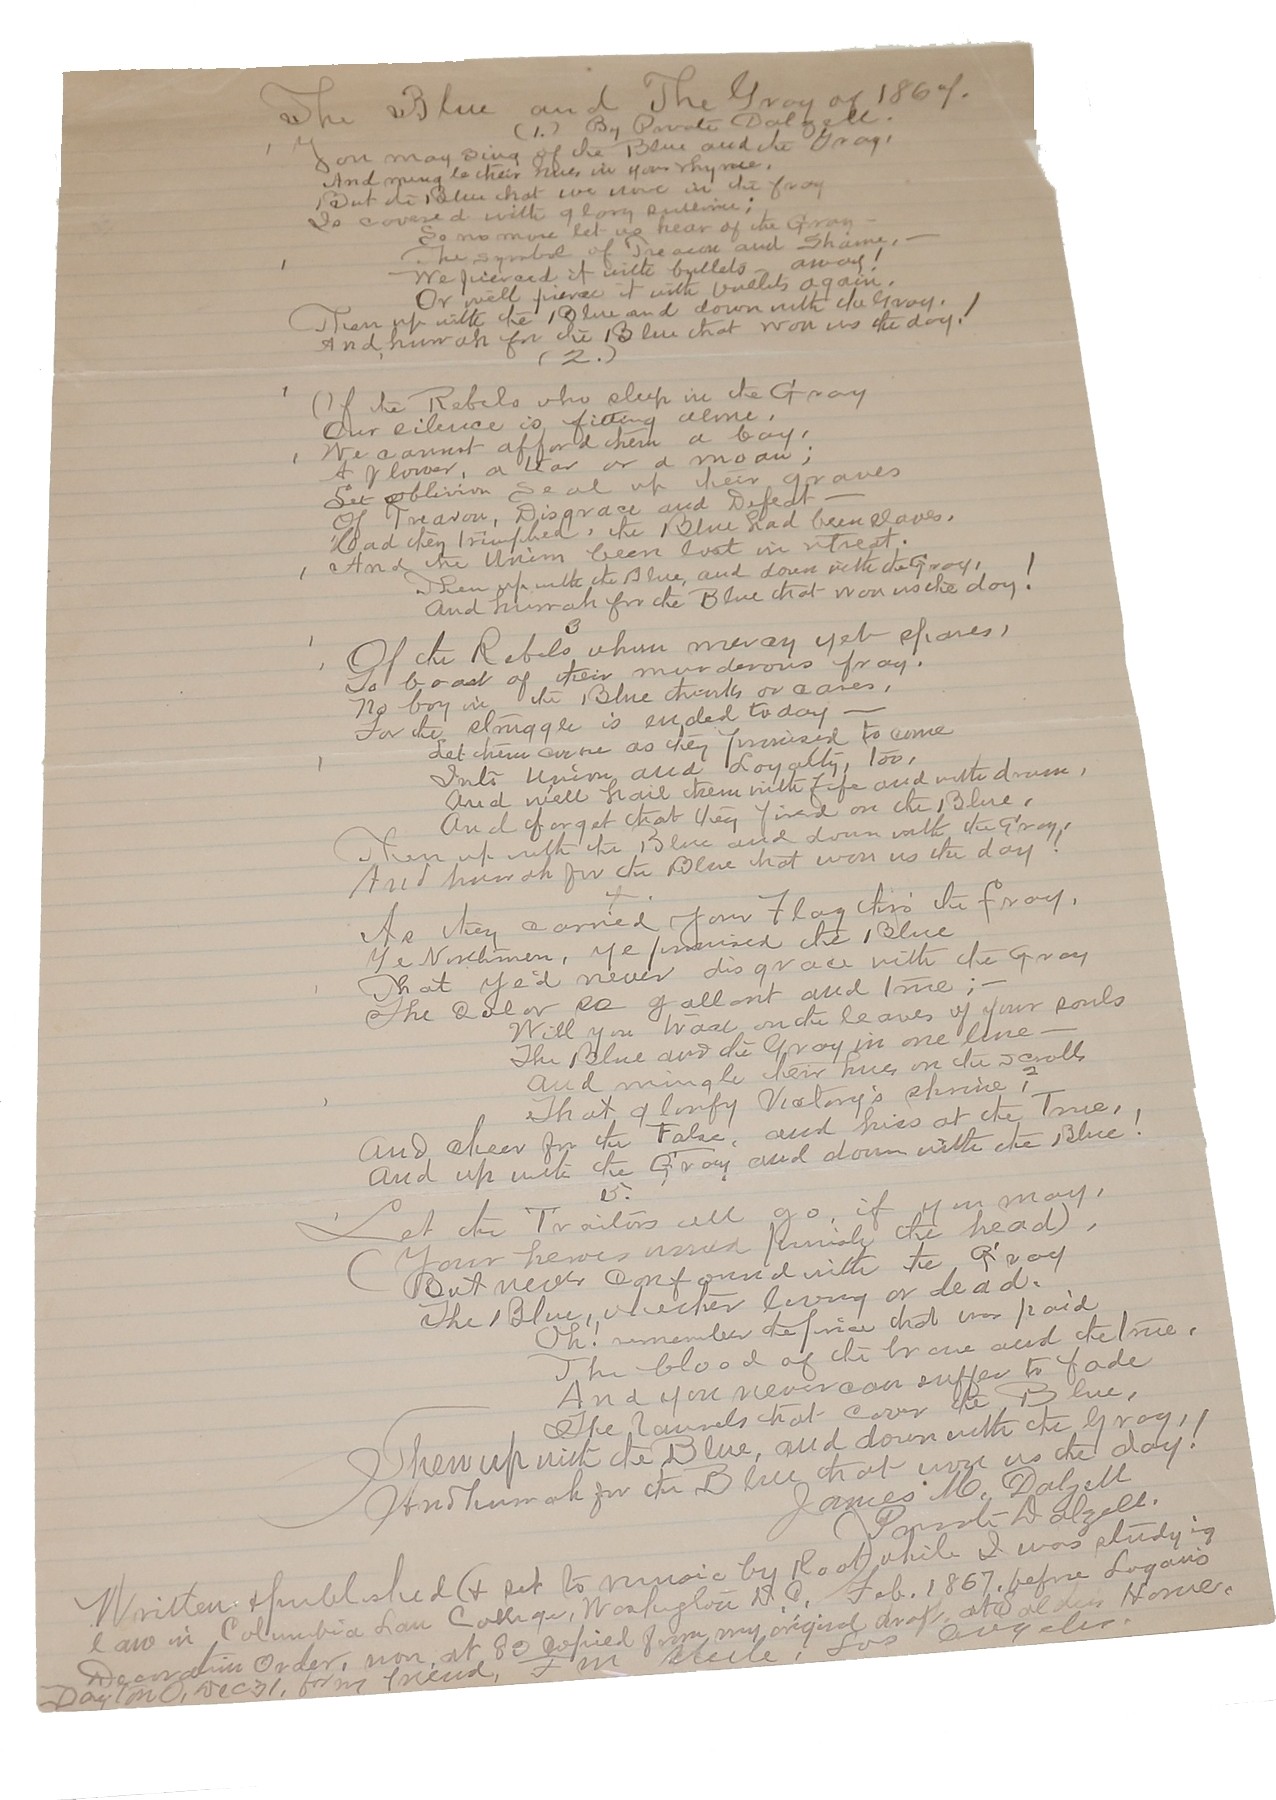 The Blue and The Gray of 1867.
(1.) By Private Dalzell.
You may sing of the Blue and the Gray,
And mingle their hues in your rhyme,
But the Blue that we wore in the fray
Is covered with glory sublime;
So no more let us hear of the Gray —
The symbol of Treason and Shame, —
We pierced it with bullets — away!
Or we'll pierce it with bullets again.
Then up with the Blue and down with the Gray,
And hurrah for the Blue that won us the day!
(2.)
Of the Rebels who sleep in the Gray
Our silence is fitting alone,
We cannot afford them a bay,
A flower, a tear or a moan;
Let oblivion seal up their graves
Of Treason, Disgrace and Defeat —
Had they triumphed, the Blue had been slaves,
And the Union been lost in retreat.
Then up with the Blue, and down with the Gray,
And hurrah for the Blue that won us the day!
3
Of the Rebels whom mercy yet spares,
To boast of their murderous fray,
No boy in the Blue thinks or cares,
For the struggle is ended today —
Let them come as they promised to come
Into Union and Loyalty, too,
And we'll hail them with fife and with drum,
And forget that they fired on the Blue,
Then up with the Blue and down with the Gray,
And hurrah for the Blue that won us the day!
4.
As they carried your Flag thro the fray,
Ye Northmen, ye promised the Blue
That ye'd never disgrace with the Gray
The Color so gallant and true; —
Will you trace on the leaves of your souls
The Blue and the Gray in one line —
And mingle their hues on the scrolls
That glorify Victory's shrine?
And cheer for the False, and hiss at the True,
And up with the Gray and down with the Blue!
5.
Let the Traitors all go, if you may,
(Your heroes would punish the head),
But never confound with the Gray
The Blue, whether living or dead.
Oh! remember the price that was paid
The blood of the brave and the true,
And you never can suffer to fade
The laurels that cover the Blue,
Then up with the Blue, and down with the Gray,
And hurrah for the Blue that won us the day!
James M. Dalzell
Private Dalzell.
Written & published (& set to music by Root) while I was studying
law in Columbia Law College, Washington D.C. Feb. 1867, before Logan's
Decoration Order, now, at 82 copied from my original draft, at Soldiers Home,
Dayton O, Dec 31, for my friend, Los Angeles.